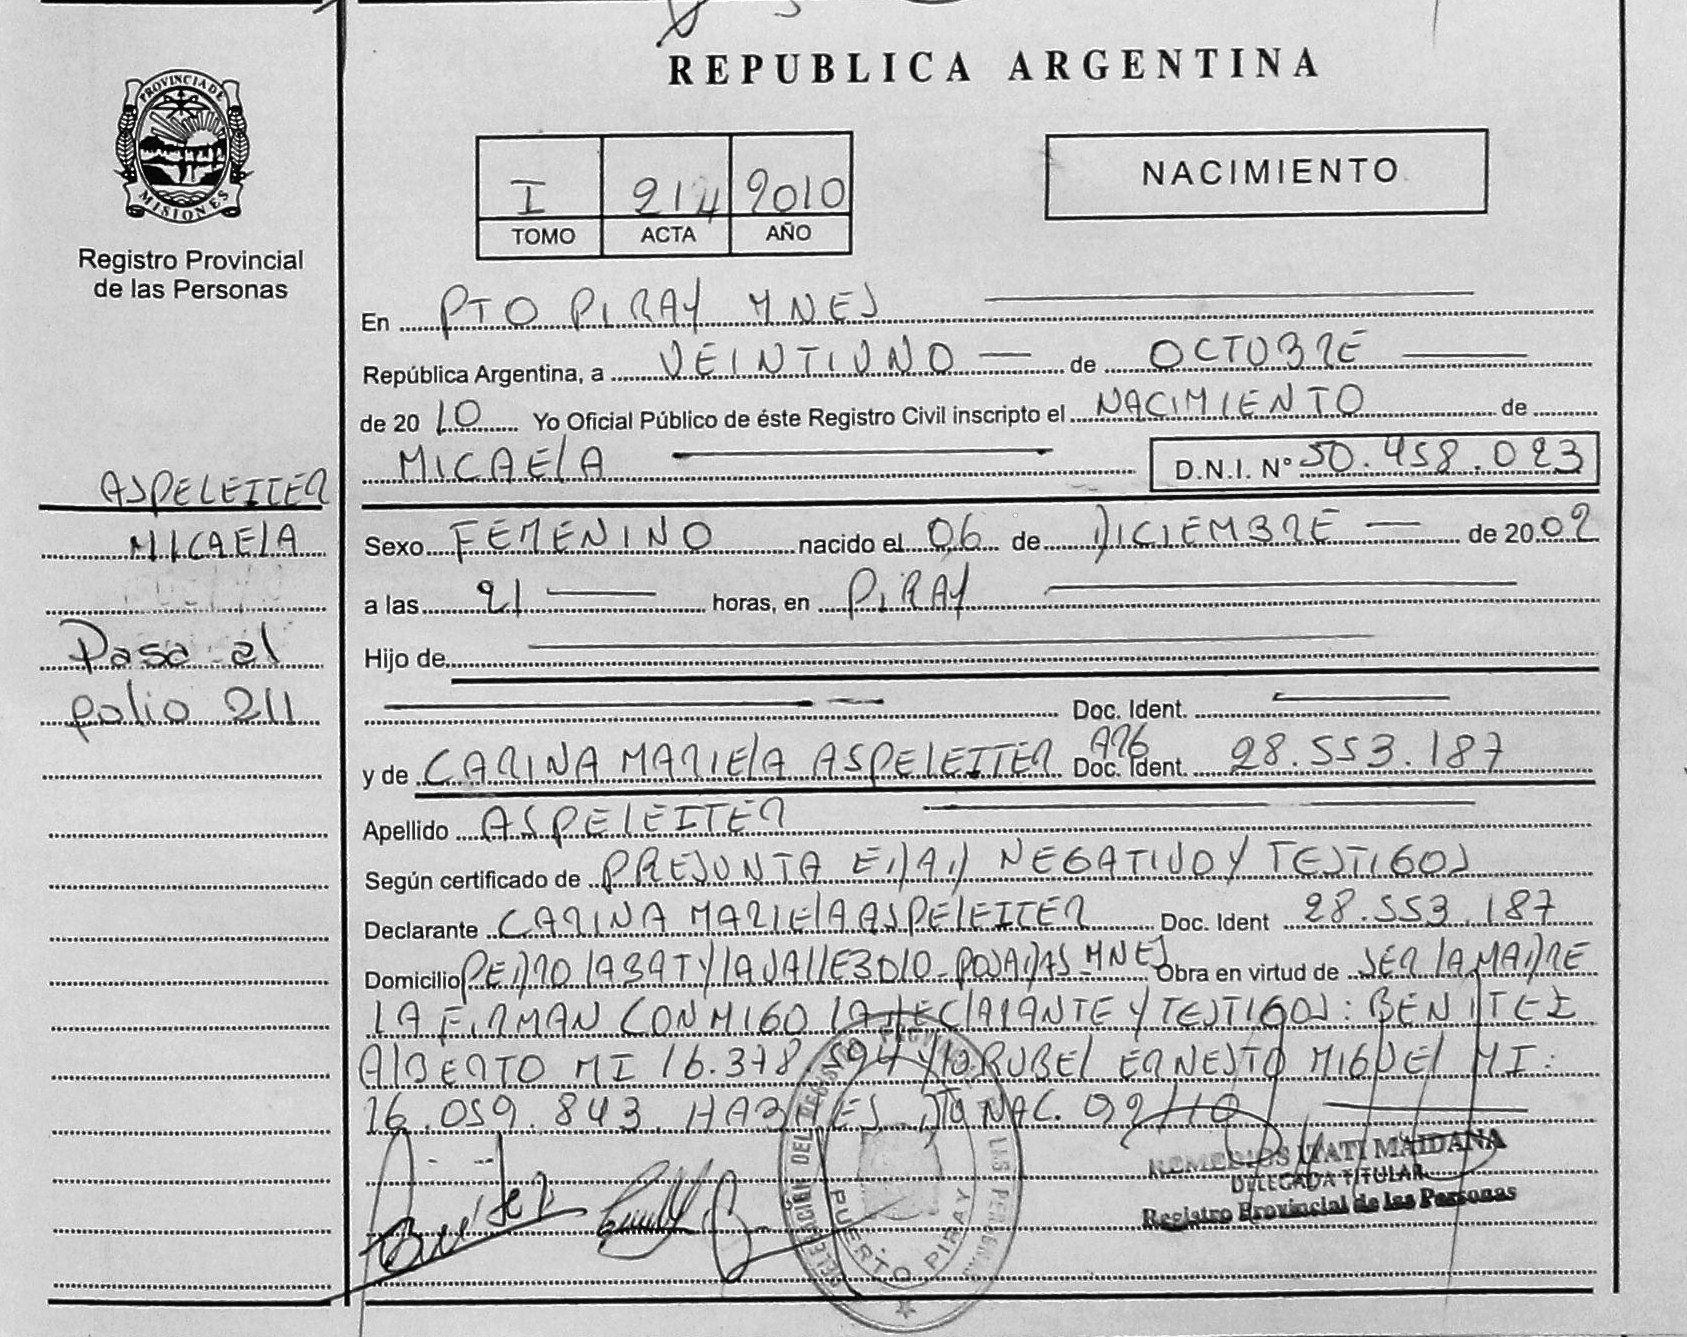 REPUBLICA ARGENTINA
PROVINCIA DE
MISIONES
Registro Provincial
de las Personas
I 214 2010
TOMO ACTA AÑO
NACIMIENTO
En PTO PIRAY MNES
República Argentina, a VEINTIUNO de OCTUBRE
de 2010 Yo Oficial Público de éste Registro Civil inscripto el NACIMIENTO de
MICAELA D.N.I. N° 50.458.023
ASPELEITER
MICAELA
Pasa al
folio 211
Sexo FEMENINO nacido el 06 de DICIEMBRE de 2002
a las 21 horas, en PIRAY
Hijo de
Doc. Ident.
y de CARINA MARIELA ASPELEITER Doc. Ident. 28.553.187
Apellido ASPELEITER
Según certificado de PRESUNTA EDAD NEGATIVO Y TESTIGOS
Declarante CARINA MARIELA ASPELEITER Doc. Ident 28.553.187
Domicilio PEDRO LABAT Y LAVALLE 3010 - POSADAS - MNES Obra en virtud de SER LA MADRE
LA FIRMAN CONMIGO LA DECLARANTE Y TESTIGOS: BENITEZ
ALBERTO MI 16.378.594 Y ERNESTO MIGUEL MI:
16.059.843 HABILES 02/10
REMEDIOS ITATI MAIDANA
DELEGADA TITULAR
Registro Provincial de las Personas
PUERTO PIRAY